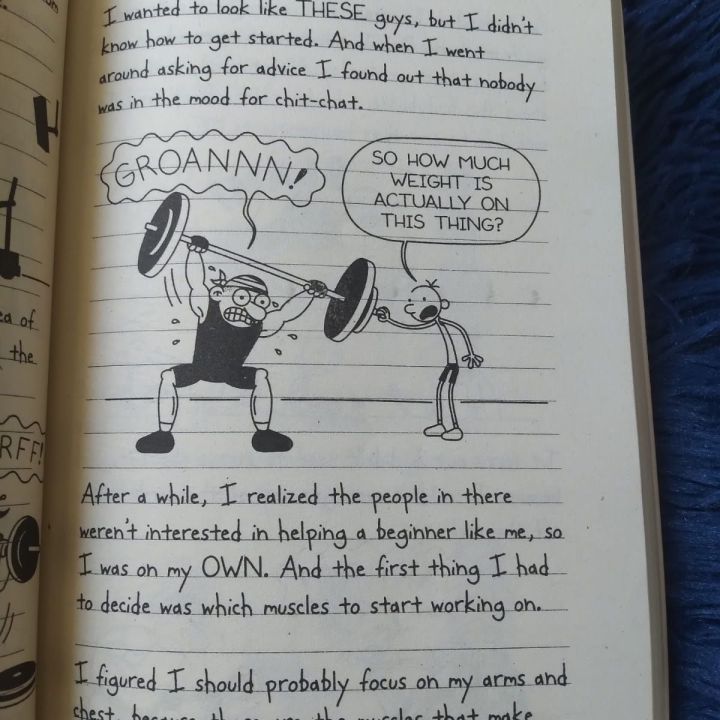 I wanted to look like THESE guys, but I didn't
know how to get started. And when I went
around asking for advice I found out that nobody
was in the mood for chit-chat.
GROANNN!
SO HOW MUCH
WEIGHT IS
ACTUALLY ON
THIS THING?
After a while, I realized the people in there
weren't interested in helping a beginner like me, so
I was on my OWN. And the first thing I had
to decide was which muscles to start working on.
I figured I should probably focus on my arms and
chest, because those are the muscles that make
of
the